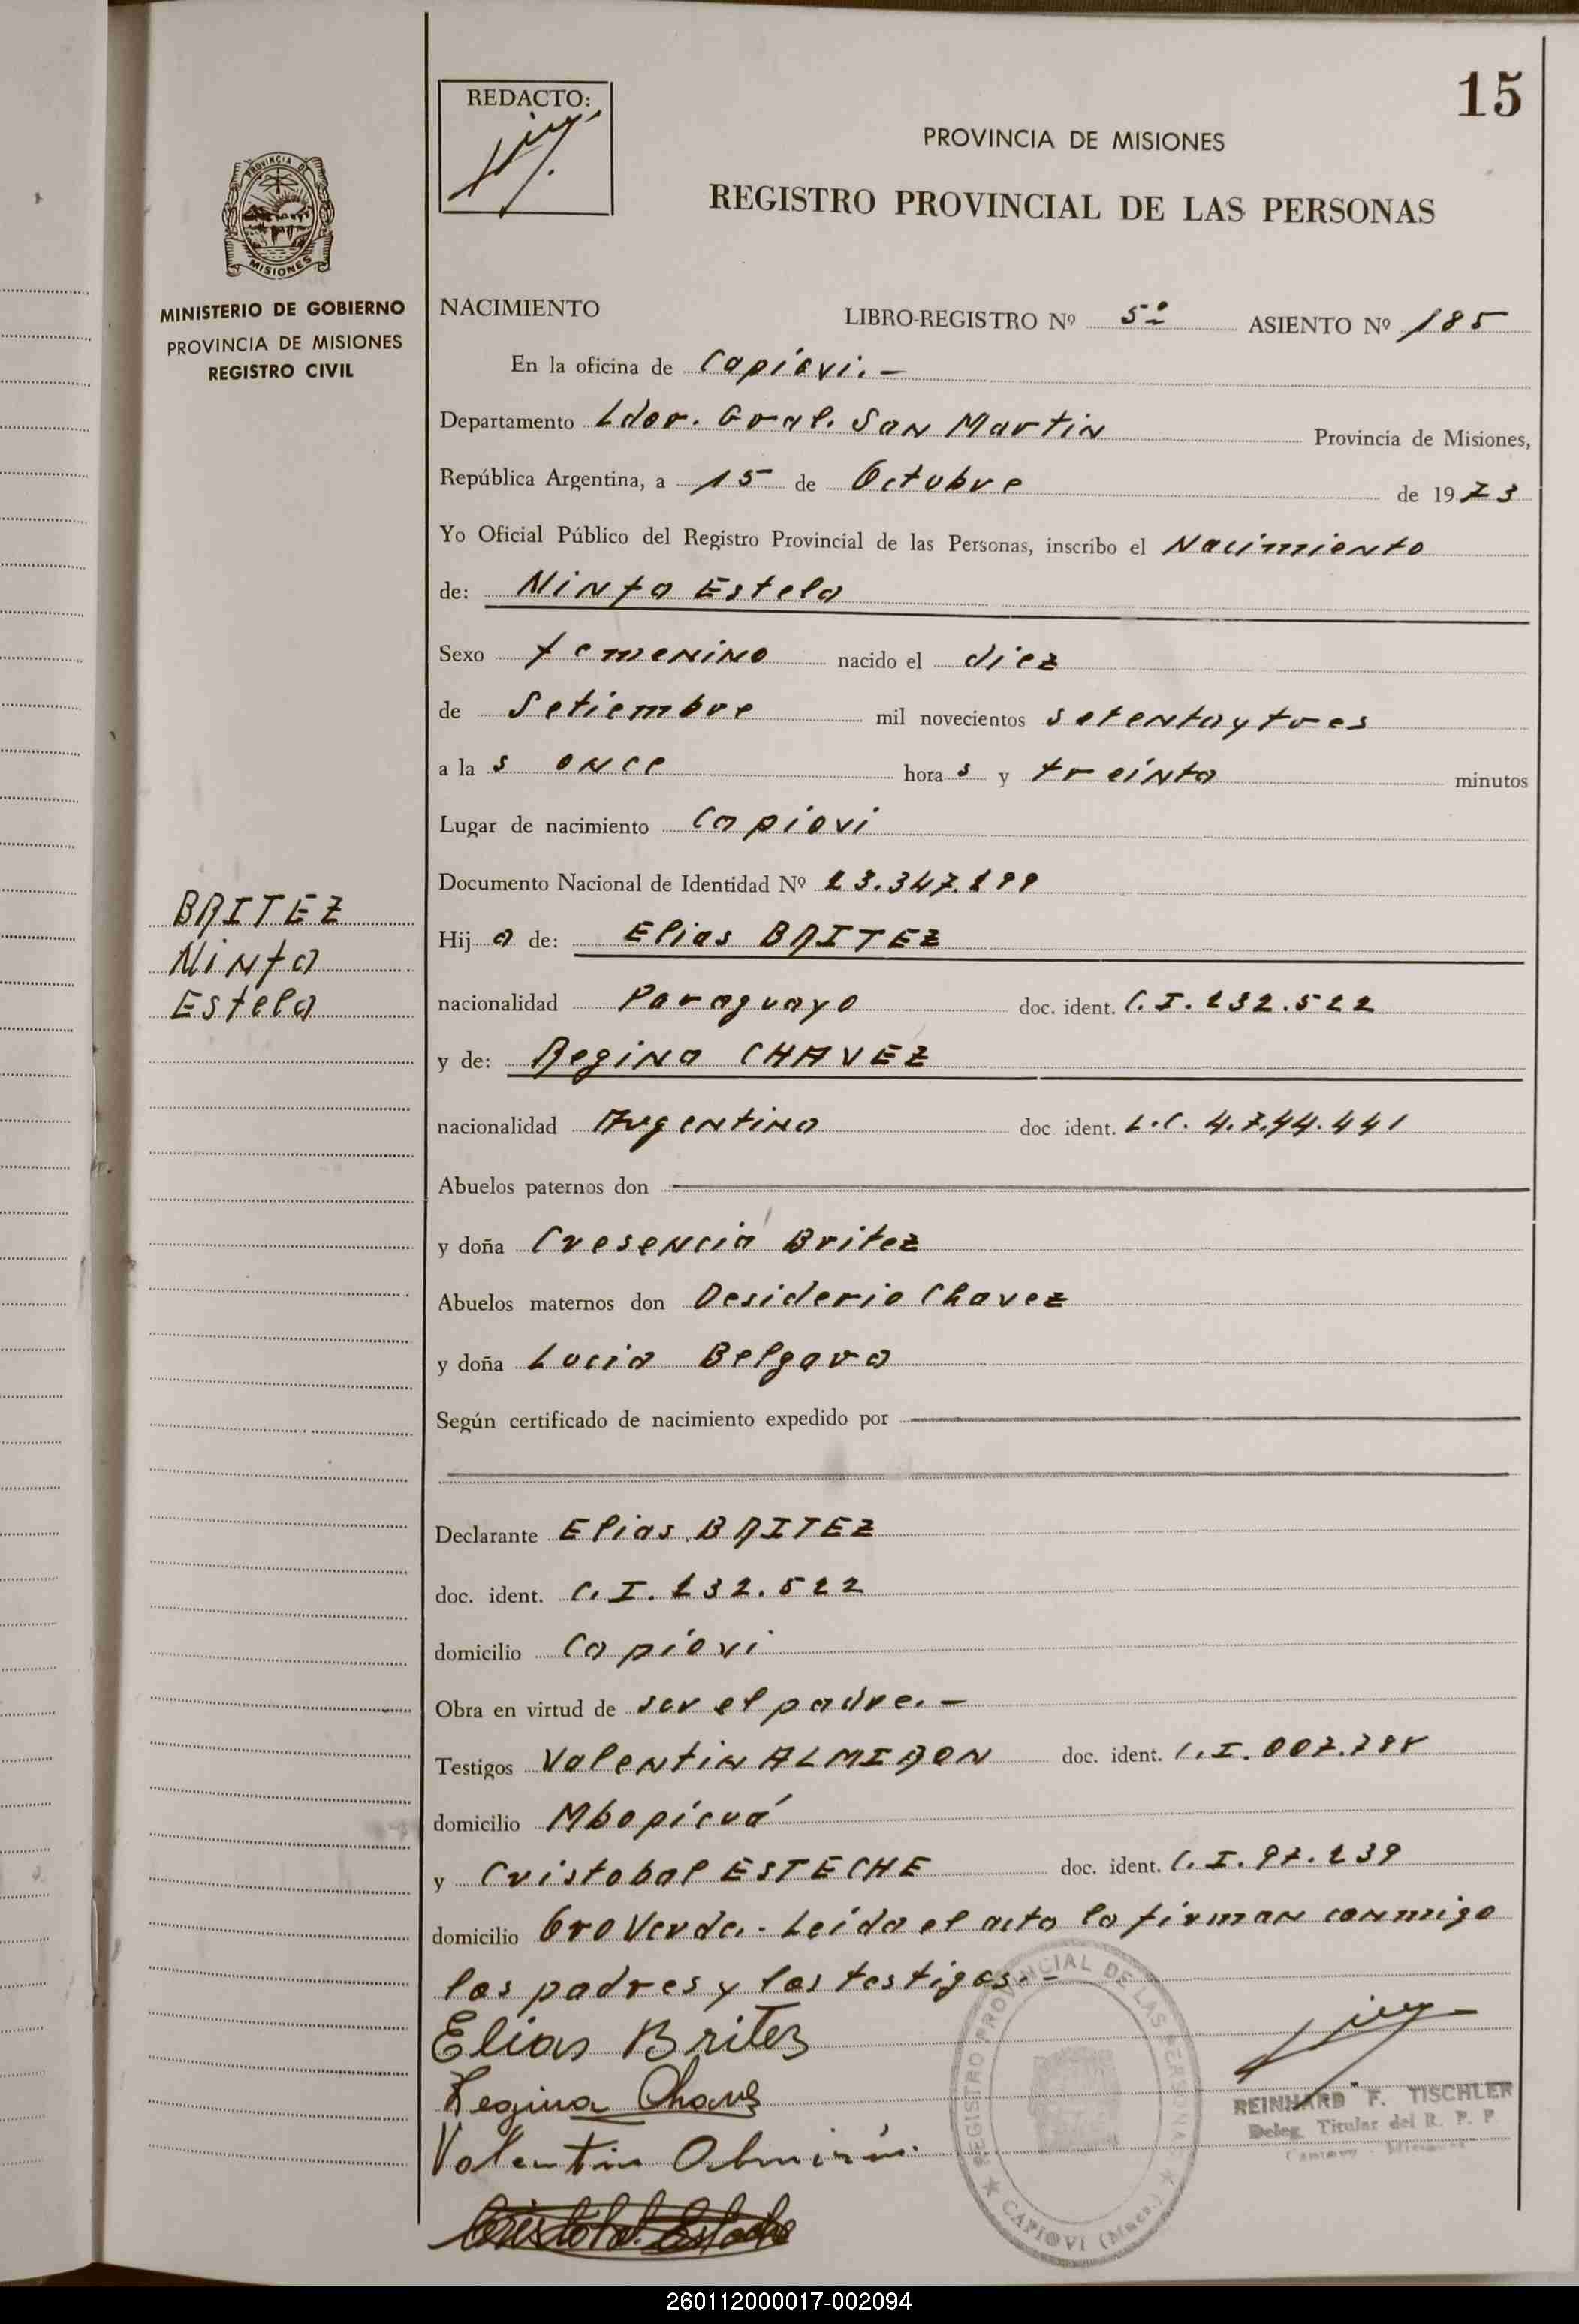 15
REDACTO:
PROVINCIA DE MISIONES
REGISTRO PROVINCIAL DE LAS PERSONAS
PROVINCIA DE
MISIONES
MINISTERIO DE GOBIERNO
PROVINCIA DE MISIONES
REGISTRO CIVIL
NACIMIENTO LIBRO-REGISTRO Nº 5º ASIENTO Nº 185
En la oficina de Capiovi.-
Departamento Ldor. Gral. San Martin Provincia de Misiones,
República Argentina, a 15 de Octubre de 1973
Yo Oficial Público del Registro Provincial de las Personas, inscribo el Nacimiento
de: Ninfa Estela
Sexo femenino nacido el diez
de Setiembre mil novecientos setenta y tres
a las once horas y treinta minutos
Lugar de nacimiento Capiovi
Documento Nacional de Identidad Nº 23.347.299
BRITEZ
Ninfa
Estela
Hija de: Elias BRITEZ
nacionalidad Paraguayo doc. ident. C.I. 232.522
y de: Regina CHAVEZ
nacionalidad Argentina doc ident. L.C. 4.744.441
Abuelos paternos don
y doña Cresencia Britez
Abuelos maternos don Desiderio Chavez
y doña Lucia Belgara
Según certificado de nacimiento expedido por
Declarante Elias BRITEZ
doc. ident. C.I. 232.522
domicilio Capiovi
Obra en virtud de ser el padre.-
Testigos Valentin ALMIRON doc. ident. C.I.
domicilio Mbopicuá
y Cristobal ESTECHE doc. ident. C.I. 97.239
domicilio Oro Verde.- Leida el acta la firman conmigo
los padres y los testigos.-
Elias Britez
Regina Chavez
Valentin Almirón
Cristobal Esteche
REGISTRO PROVINCIAL DE LAS PERSONAS
CAPIOVI (Mnes.)
REINHARD F. TISCHLER
Deleg. Titular del R. P. P.
260112000017-002094